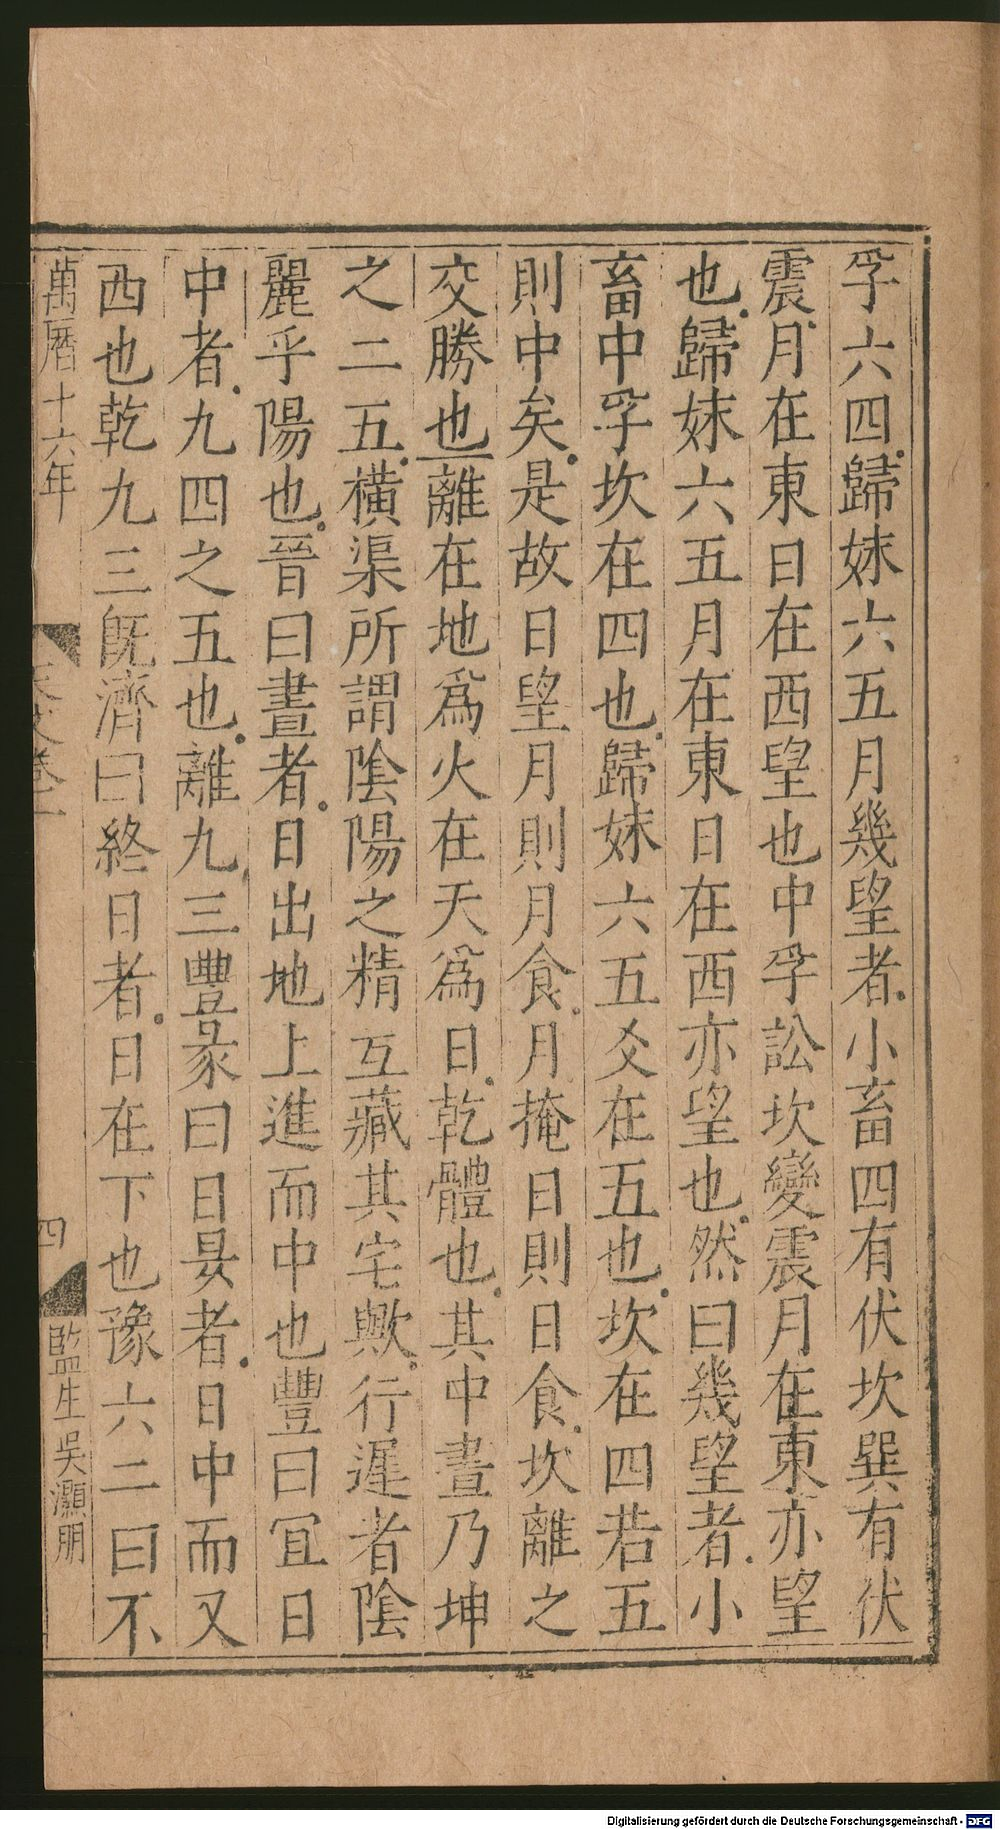 孚六四歸妹六五月幾望者小畜四有伏坎巽有伏
震月在東日在西望也中孚訟坎變震月在東亦望
也歸妹六五月在東日在西亦望也然曰幾望者小
畜中孚坎在四也歸妹六五爻在五也坎在四若五
則中矣是故日望月則月食月掩日則日食坎離之
交勝也離在地爲火在天爲日乾體也其中畫乃坤
之二五橫渠所謂陰陽之精互藏其宅歟行遲者陰
麗乎陽也晉曰晝者日出地上進而中也豐曰宜日
中者九四之五也離九三豐彖曰日昃者日中而又
西也乾九三旣濟曰終日者日在下也豫六二曰不
萬曆十六年
四
監生吳灝朋
Digitalisierung gefördert durch die Deutsche Forschungsgemeinschaft - DFG